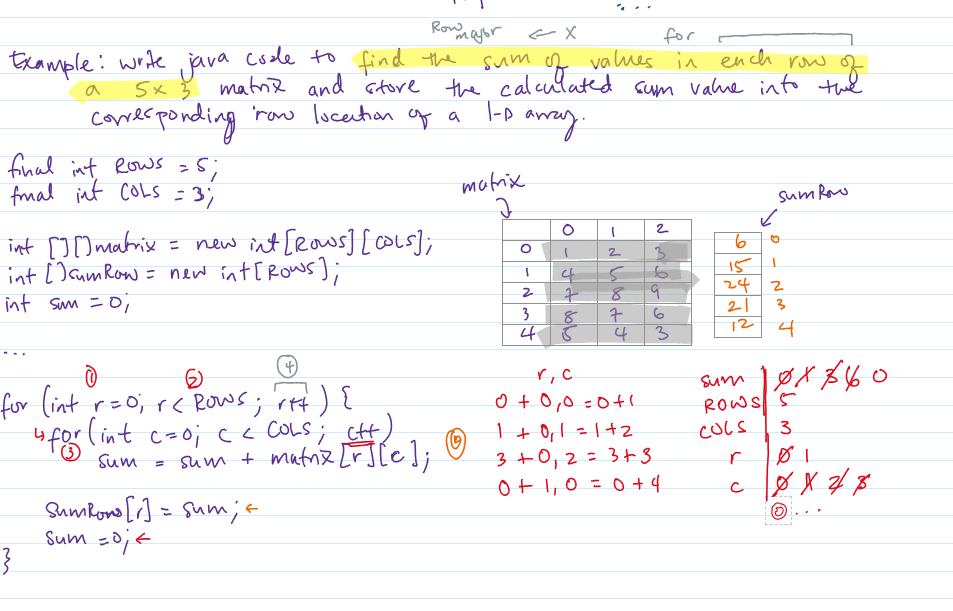 Row major ← X
for
Example: write java code to find the sum of values in each row of
a 5x3 matrix and store the calculated sum value into the
corresponding row location of a 1-D array.
final int ROWS = 5;
final int COLS = 3;
int [][]matrix = new int[ROWS][COLS];
int []sumRow = new int[ROWS];
int sum = 0;
...
matrix
0 1 2
0 1 2 3
1 4 5 6
2 7 8 9
3 8 7 6
4 5 4 3
sumRow
6 0
15 1
24 2
21 3
12 4
① ② ④
for (int r=0; r < ROWS; r++) {
↳ for (int c=0; c < COLS; c++)
③ sum = sum + matrix[r][c]; ⑤
sumRow[r] = sum; ←
sum = 0; ←
}
r, c
0 + 0,0 = 0+1
1 + 0,1 = 1+2
3 + 0,2 = 3+3
0 + 1,0 = 0+4
sum 0 1 3 6 0
ROWS 5
COLS 3
r 0 1
c 0 1 2 3
0 ...